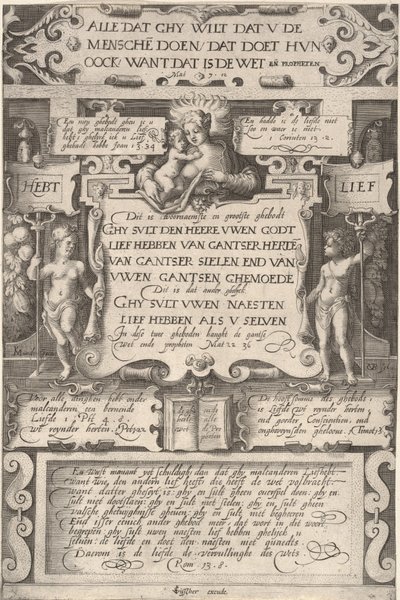 ALLE DAT GHY WILT DAT V DE
MENSCHE DOEN / DAT DOET HVN
OOCK / WANT DAT IS DE WET EN PROPHETEN
Mat 7 12
Een niew ghebodt gheu ic u
dat ghy malcanderen lief
hebt
ghehadt hebbe Joan 13.34
En hadde ic de liefde niet
soo en waer ic niet
1 Corinten 13.2.
HEBT
LIEF
Dit is voornaemste en grootste ghebodt
GHY SVLT DEN HEERE VWEN GODT
LIEF HEBBEN VAN GANTSER HERTE
VAN GANTSER SIELEN END VAN
VWEN GANTSEN GHEMOEDE
Dit is dat ander ghelyck
GHY SVLT VWEN NAESTEN
LIEF HEBBEN ALS V SELVEN
In dese twee gheboden hanght de gantse
wet ende propheten Mat 22 36
Voor alle dinghen hebt onder
malcanderen een bernende
Liefde 1 Pet 4 8
wt reynder herten
De hooft somme des ghebods
is Liefde wt reynder herten
end goeder Conscientien, end
ongheveynsden gheloove. 1 Timot 1
En Weest niemant yet schuldigh dan dat ghy malcanderen Liefhebt
want wie den andern lief heeft die heeft de wet volbracht.
want datter gheseyt is: ghy en sult gheen overspel doen: ghy en
sult niet dootslaen: ghy en sult niet stelen: ghy en sult gheen
valsche ghetuyghnisse gheven: ghy en sult niet begheeren
End isser eenich ander ghebod meer, dat wort in dit woort
begrepen, ghy sult uwen naesten lief hebben ghelyck u
selven: de liefde en doet den naesten niet quaedts.
Daerom is de liefde de vervullinghe des wets.
Rom 13.8.
Visscher excude.